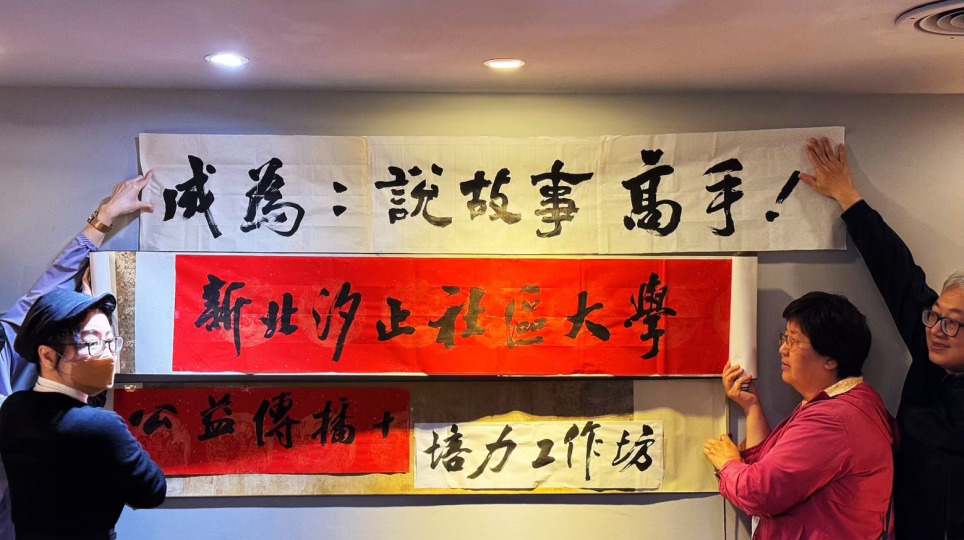 成為：說故事高手！
新北汐止社區大學
公益傳播+
培力工作坊